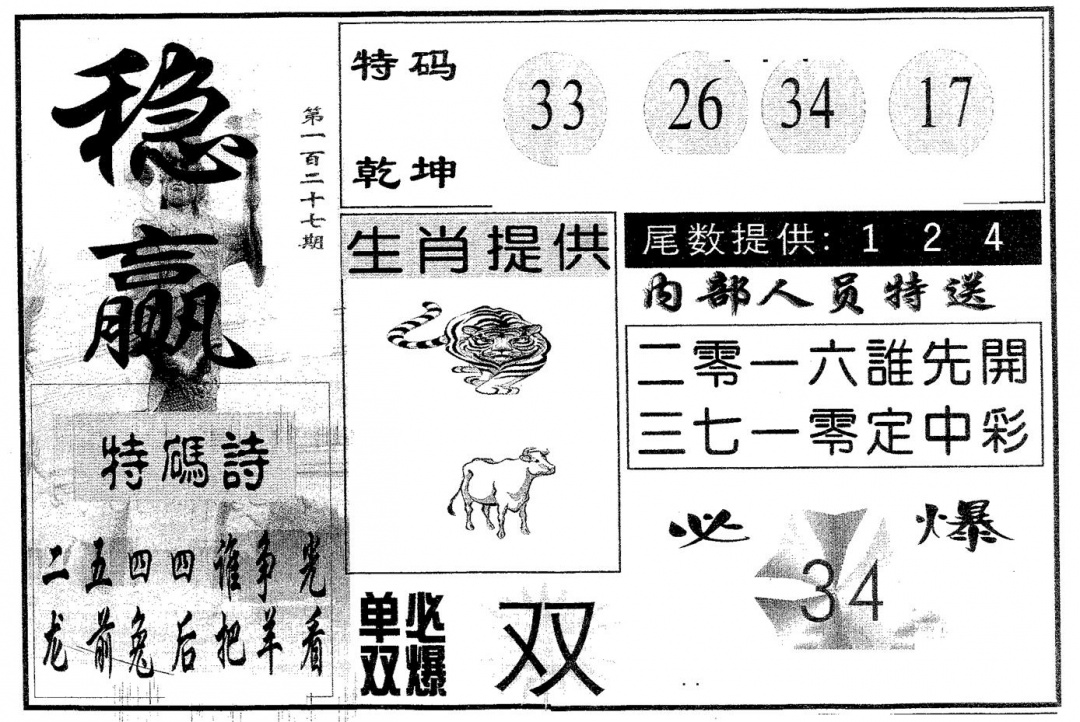 稳赢
第一百二十七期
特码
乾坤
33 26 34 17
特碼詩
二五四四谁争光
龙前兔后把羊看
生肖提供
单双
必爆
双
尾数提供: 1 2 4
内部人员特送
二零一六誰先開
三七一零定中彩
必爆
34